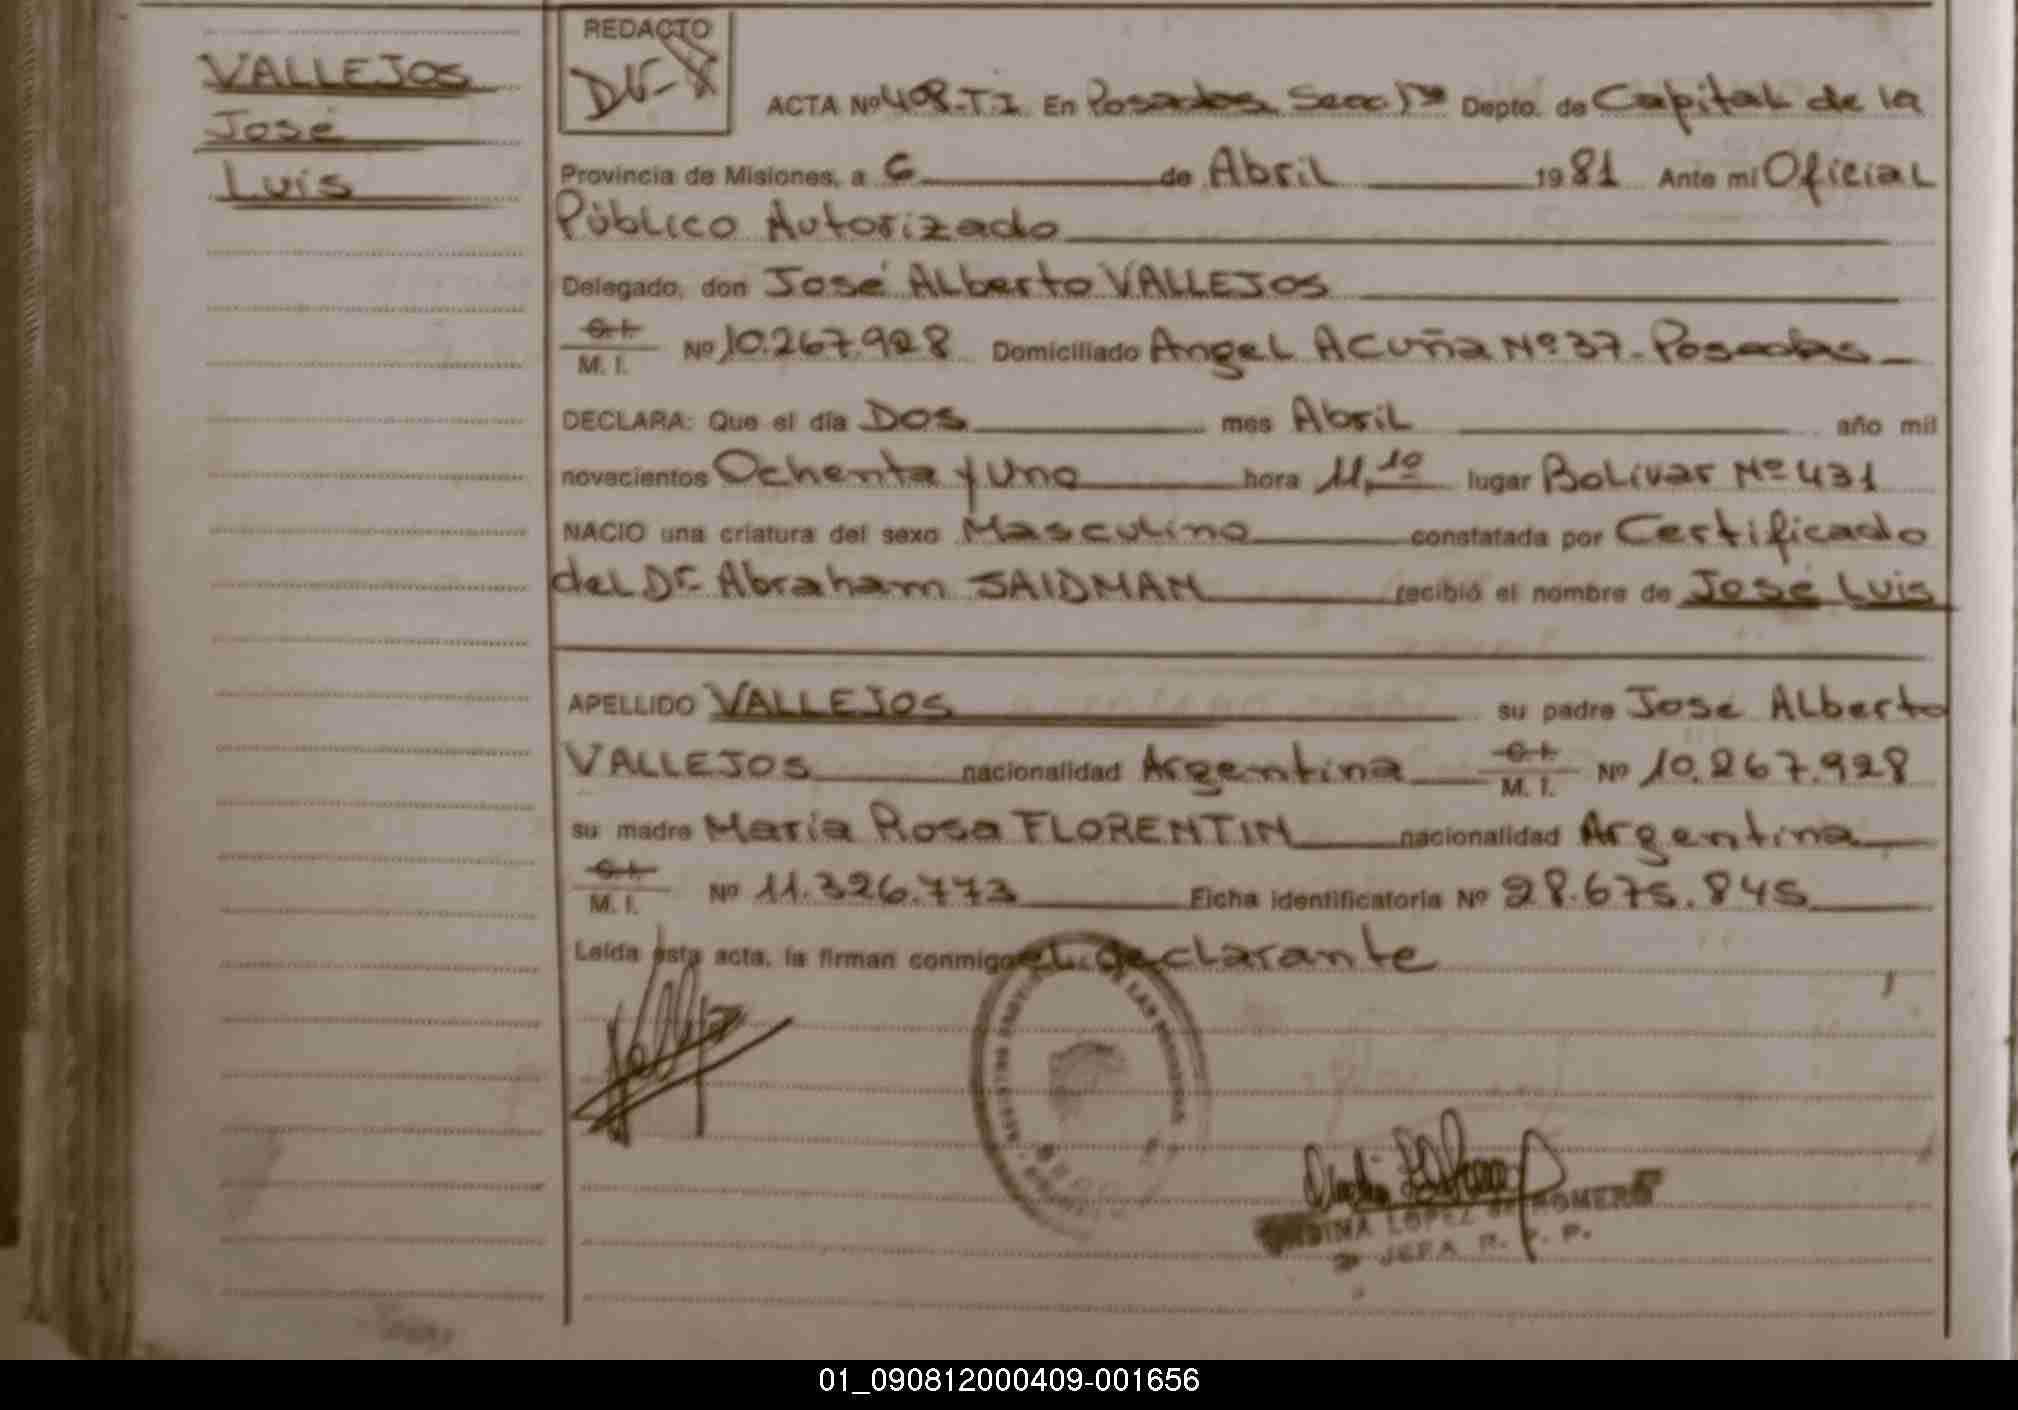 VALLEJOS
José
Luis
REDACTO
ACTA Nº 408-T.I. En Posadas Secc. 1ra Depto. de Capital de la
Provincia de Misiones, a 6 de Abril 1981 Ante mí Oficial
Público Autorizado
Delegado, don José Alberto VALLEJOS
C.I.
M. I. Nº 10.267.928 Domiciliado Angel Acuña Nº 37 - Posadas
DECLARA: Que el día Dos mes Abril año mil
novecientos Ochenta y Uno hora 11,10 lugar Bolívar Nº 431
NACIO una criatura del sexo Masculino constatada por Certificado
del Dr. Abraham SAIDMAN recibió el nombre de José Luis
APELLIDO VALLEJOS su padre José Alberto
VALLEJOS nacionalidad Argentina C.I. M. I. Nº 10.267.928
su madre María Rosa FLORENTIN nacionalidad Argentina
C.I.
M. I. Nº 11.326.773 Ficha identificatoria Nº 28.675.845
Leída esta acta, la firman conmigo el declarante
LOPEZ de ROMERO
JEFA R. P. P.
01_090812000409-001656